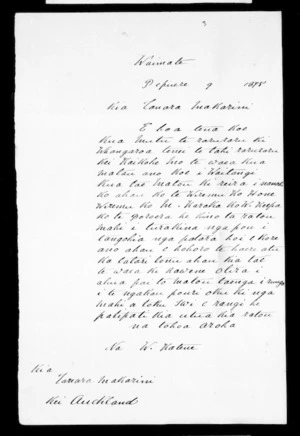 Waimate
Pepuere 9 1875
Kia Tanara Makarini
E hoa tena koe
kua mutu te raruraru ki
Whangaroa tenei te tahi raruraru
kei Kaikohe mo te wasa kua
matau ano koe i Waitangi
kua tae matou ki reira i
ko ahau ko te Wiremu Ko Hone
Wiremu Ko M. Karaka
ko te Poroora he kino ta ratou
mahi i turakina nga pou i
tangohia nga patara kore
ano ahau i hohoro te huri atu
ka tatari tonu ahau kia tae
te wasa ki Kawene Otira i
ahua pai to matou taenga i runga
i te ngakau pouri otira ki nga
mahi a toku Iwi e rangi he
patipati kia utua kia ratou
na tohoa aroha
Na W. Katene
Kia
Tanara Makarini
Kei Auckland